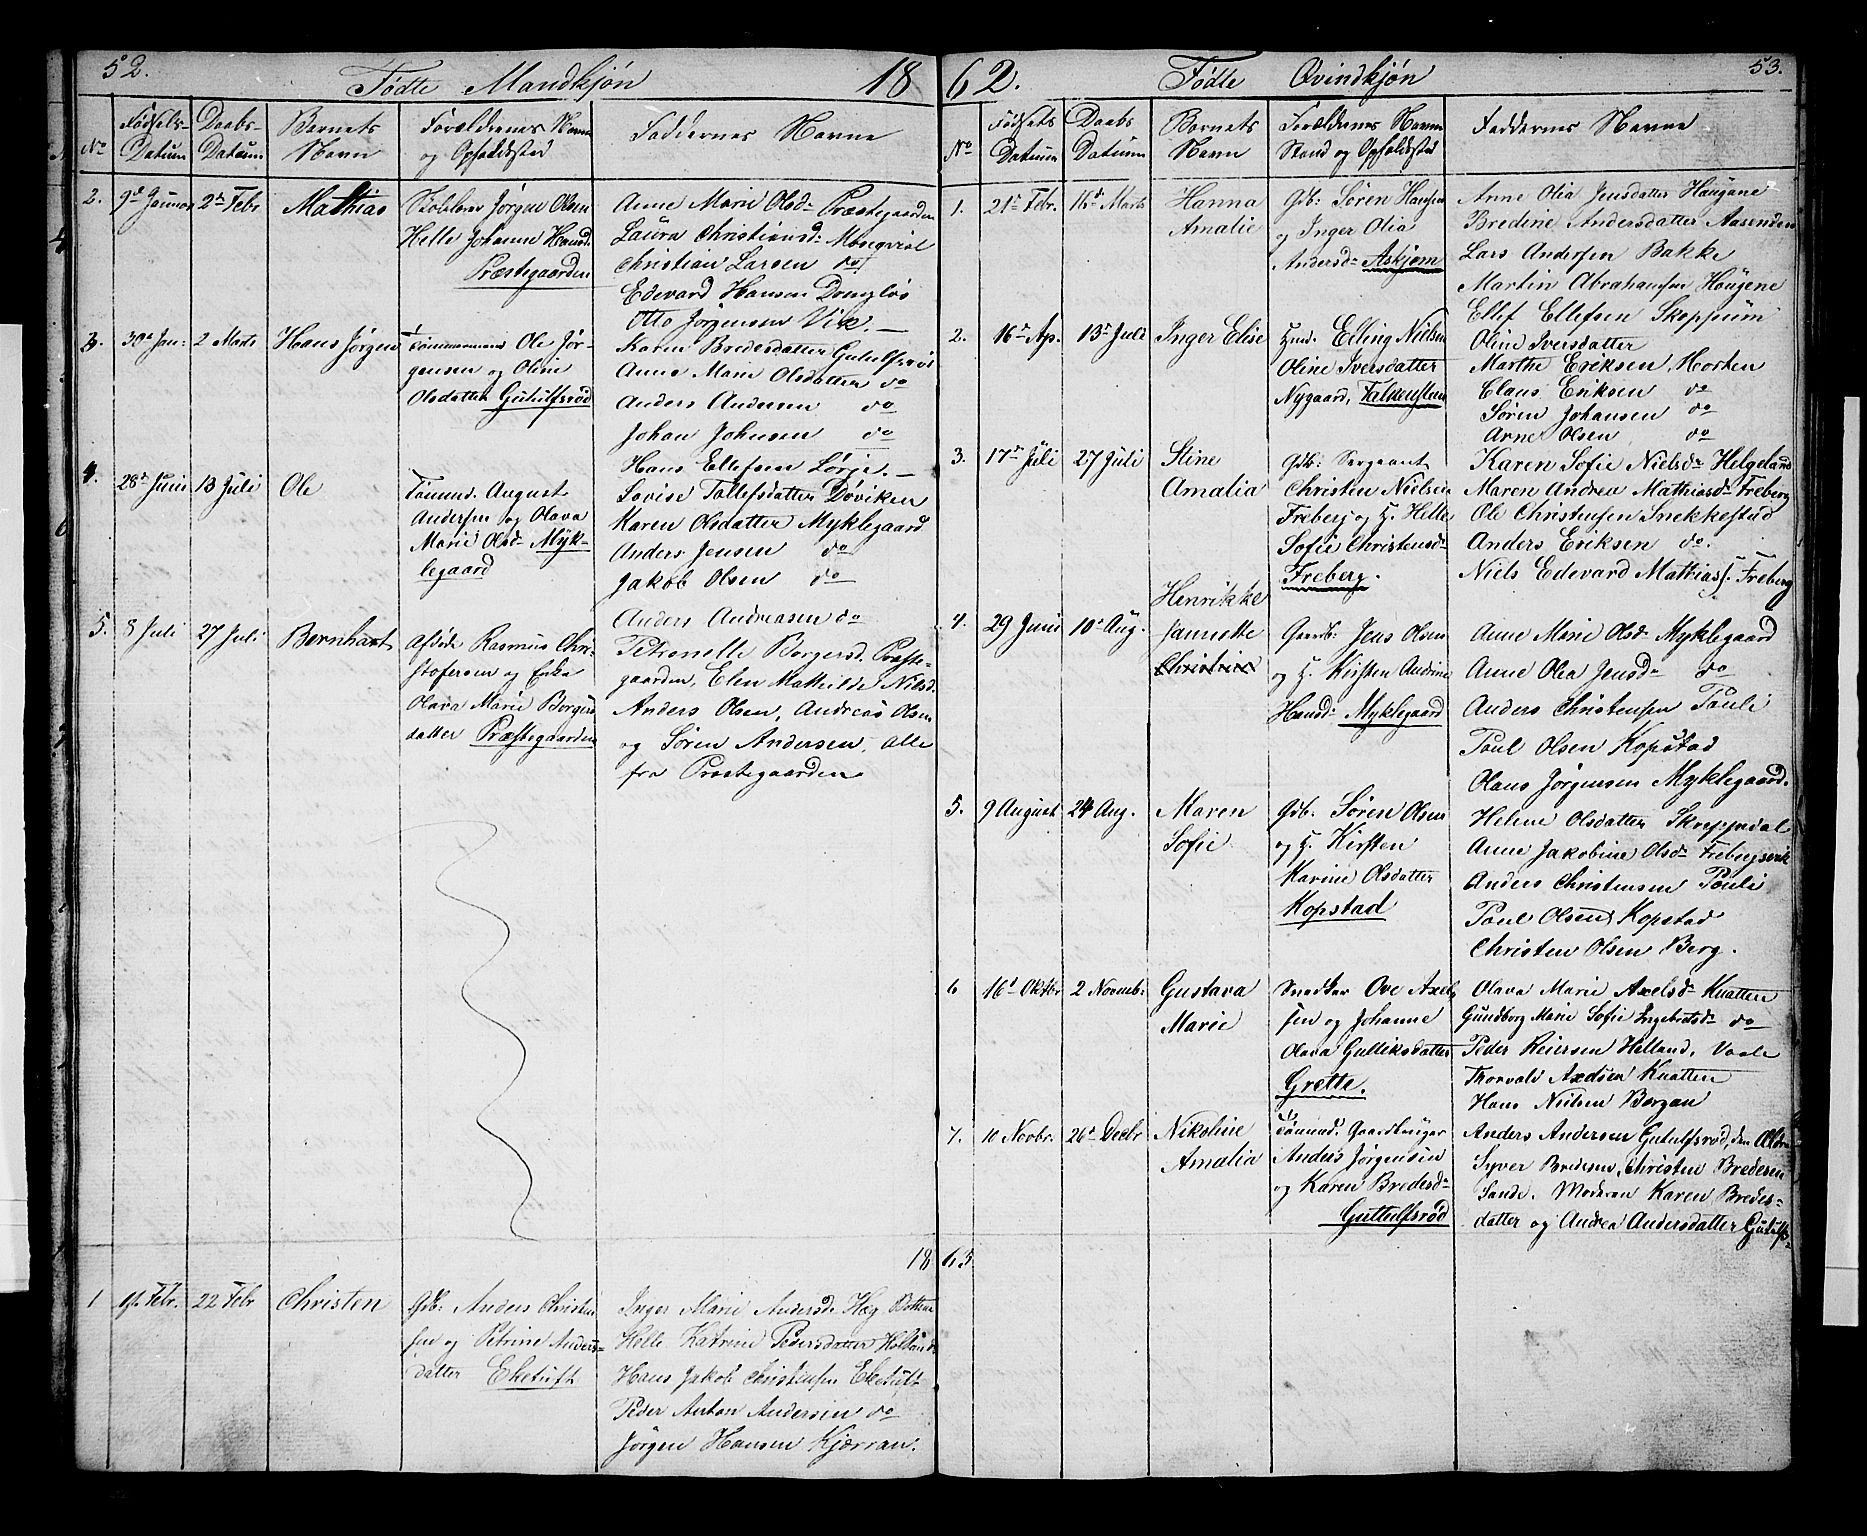 52.
Fødte Mandkjøn 18
No
Fødsels-
Datum
Daabs-
Datum
Barnets
Navn
Forældrenes Navn
og Opholdssted
Faddernes Navne
2. 9d Januar 2d Febr Mathias
Jørgen Olsen
Helle Johanne Hansd:
Præstegaarden
Anne Marie Olsd: Præstegaarden
Laura Christiansd:
Christian Larsen do
Edevard Hansen
Otto Jørgensen Vik.
3. 30d Jan: 2 Marts Hans Jørgen
Ole Jør-
gensen og Oline
Olsdatter Gutulfsrød
Karen Bredesdatter Gutulfsrød
Anne Marie Olsdatter do
Anders Andersen do
Johan Johnsen do
Hans Ellefsen
4. 28d Juni 13 Juli Ole
Tømmd: August
Andersen og Olava
Marie Olsd: Myk-
legaard
Lovise Tollefsdatter Døviken
Karen Olsdatter Myklegaard
Anders Jensen do
Jakob Olsen do
Anders Andreasen do
5. 8 Juli 27 Juli Bernhart
Afdøde Rasmus Chri-
stofersen og Enke
Olava Marie Borgers
datter Præstegaarden
Petronelle Borgersd. Præste-
gaarden, Elen Mathilde Nilsd.
Anders Olsen, Andreas Olsen
og Søren Andersen, alle
fra Præstegaarden
18
1 Febr. 22 Febr Christen
Gdb: Anders Christen
sen og Petrine Anders-
datter Eketuft
Inger Marie Andersd:
Helle Katrine Pedersdatter
Hans Jakob Christensen Eketuft
Peder Anton Andersen do
Jørgen Hansen Kjærran.
62. Fødte Qvindkjøn 53.
No
Fødsels
Datum
Daabs
Datum
Barnets
Navn
Forældrenes Navn
Stand og Opholdssted
Faddernes Navne
1. 21d Febr. 16d Marts Hanna
Amalie
Gdb: Søren Hansen
og Inger Olia
Andersd: Askjem
Anne Olia Jensdatter Haugane
Bredine Andersdatter Aasenden
Lars Andersen Bakke
Martin Abrahamsen Haugene
Ellef Ellefsen Skoppum
2. 16d Ap. 13d Juli Inger Elise
Elling Nielsen
Oline Iversdatter
Nygaard, Falkensteen
Oline Iversdatter
Marthe Eriksen, Horten
Claus Eriksen do
Søren Johansen do
Arne Olsen do
3. 17d Juli 27 Juli Stine
Amalia
Gdb: Sergeant
Christen Nielsen
Freberg og H. Helle
Sofie Christensd:
Freberg.
Karen Sofie Nielsd: Helgeland
Maren Andrea Mathiasd: Freberg
Ole Christensen Snekkestad
Anders Eriksen do.
Niels Edevard Mathiass. Freberg
4. 29 Juni 10d Aug. Henrikke
Jannette
Christine
Gaardb: Jens Olsen
og H. Kirsten Andrine
Hansd: Myklegaard
Anne Marie Olsd: Myklegaard
Anne Olea Jensd: do
Anders Christensen Pauli
Paul Olsen Kopstad
Olaus Jørgensen Myklegaard.
5. 9 August 24 Aug. Maren
Sofie
Gdb. Søren Olsen
og H. Kirsten
Karine Olsdatter
Kopstad
Helene Olsdatter Skreppedal
Anne Jakobine Olsd: Frebergsvik
Anders Christensen Pauli
Paul Olsen Kopstad
Christen Olsen Berg.
6 16d Oktbr 2 Novemb: Gustava
Marie
Snedker Ove Axel
sen og Johanne
Olava Gulliksdatter
Grette.
Olava Marie Axelsd: Knatten
Gundborg Marie Sofie Ingebretsd: do
Peder Reiersen Helland, Vaale
Thorvald Axelsen Knatten
Hans Nielsen Borgan
7. 10 Novbr. 26d Decbr Nikoline
Amalia
Tømmd. Gaardbruger
Anders Jørgensen
og Karen Bredesd:
Guttulfsrød
Anders Andersen Gutulfsrød, den Aldre
Syver Bredesen, Christen Bredesen
Sande. Moderen Karen Bredes-
datter og Andrea Andersdatter Gutulfs-
63.